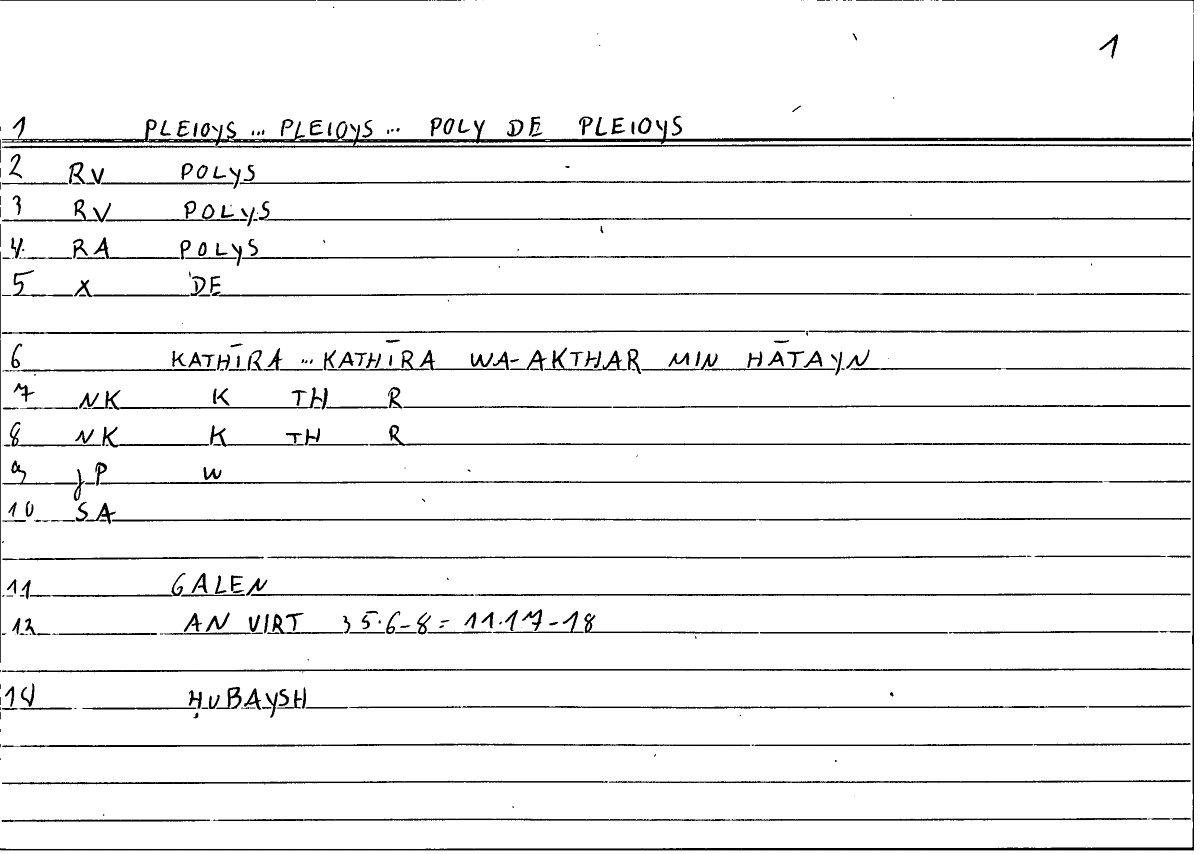 1
1 PLEIOYS ... PLEIOYS ... POLY DE PLEIOYS
2 RV POLYS
3 RV POLYS
4 RA POLYS
5 X DE
6 KATHĪRA ... KATHĪRA WA-AKTHAR MIN HĀTAYN
7 NK K TH R
8 NK K TH R
9 JP W
10 SA
11 GALEN
12 AN VIRT 35.6-8 = 11.17-18
14 ḤUBAYSH